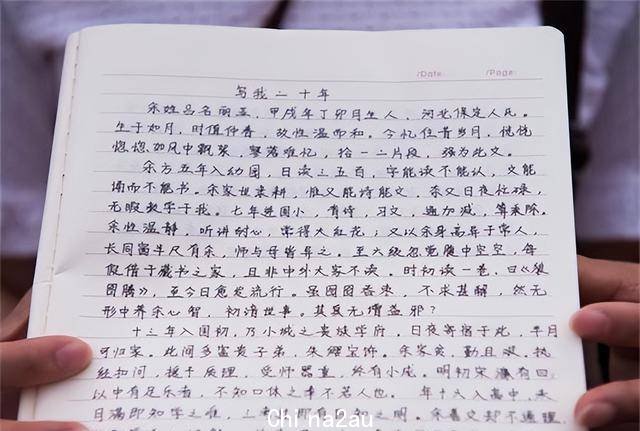 /Date: /Page:
写我二十年
余姓吕名丽孟,甲戌年丁卯月生人,河北保定人氏。
生于如月,时值仲春,故性温而和。今忆住昔岁月,恍恍
惚惚如风中飘絮,零落难忆,拾一二片段,强为此文。
余方五年入幼园,日读三五百,字能读不能认,文能
诵而不能书。余家世来耕,惟父能诗能文,奈父日夜忙碌,
无暇教学于我。七年进国小,有诗,习文,通加减,算乘除。
余性温静,听讲耐心,常得大红花;又以余身高异于常人,
长同窗半尺有余,师与母皆异之。至六级忽觉腹中空空,每
假借于藏书之家,且非中外大家不读。时初读一卷,曰《狼
图腾》,至今日愈发流行。虽囫囵吞枣,不求甚解,然无
形中养余心智,初谙世事。其夏无增益邪?
十三年入国初,乃小城之贵族学府,日夜寄宿于此,半月
可归家。此间多富贵子弟,朱缨宝饰。余家贫,勤且艰,执
经扣问,援疑质理,受师器重,终有小成。明初宋濂有曰:
以中有足乐者,不知口体之奉不若人也。年十六入高中,
日满即知学之难,
Chi na2au